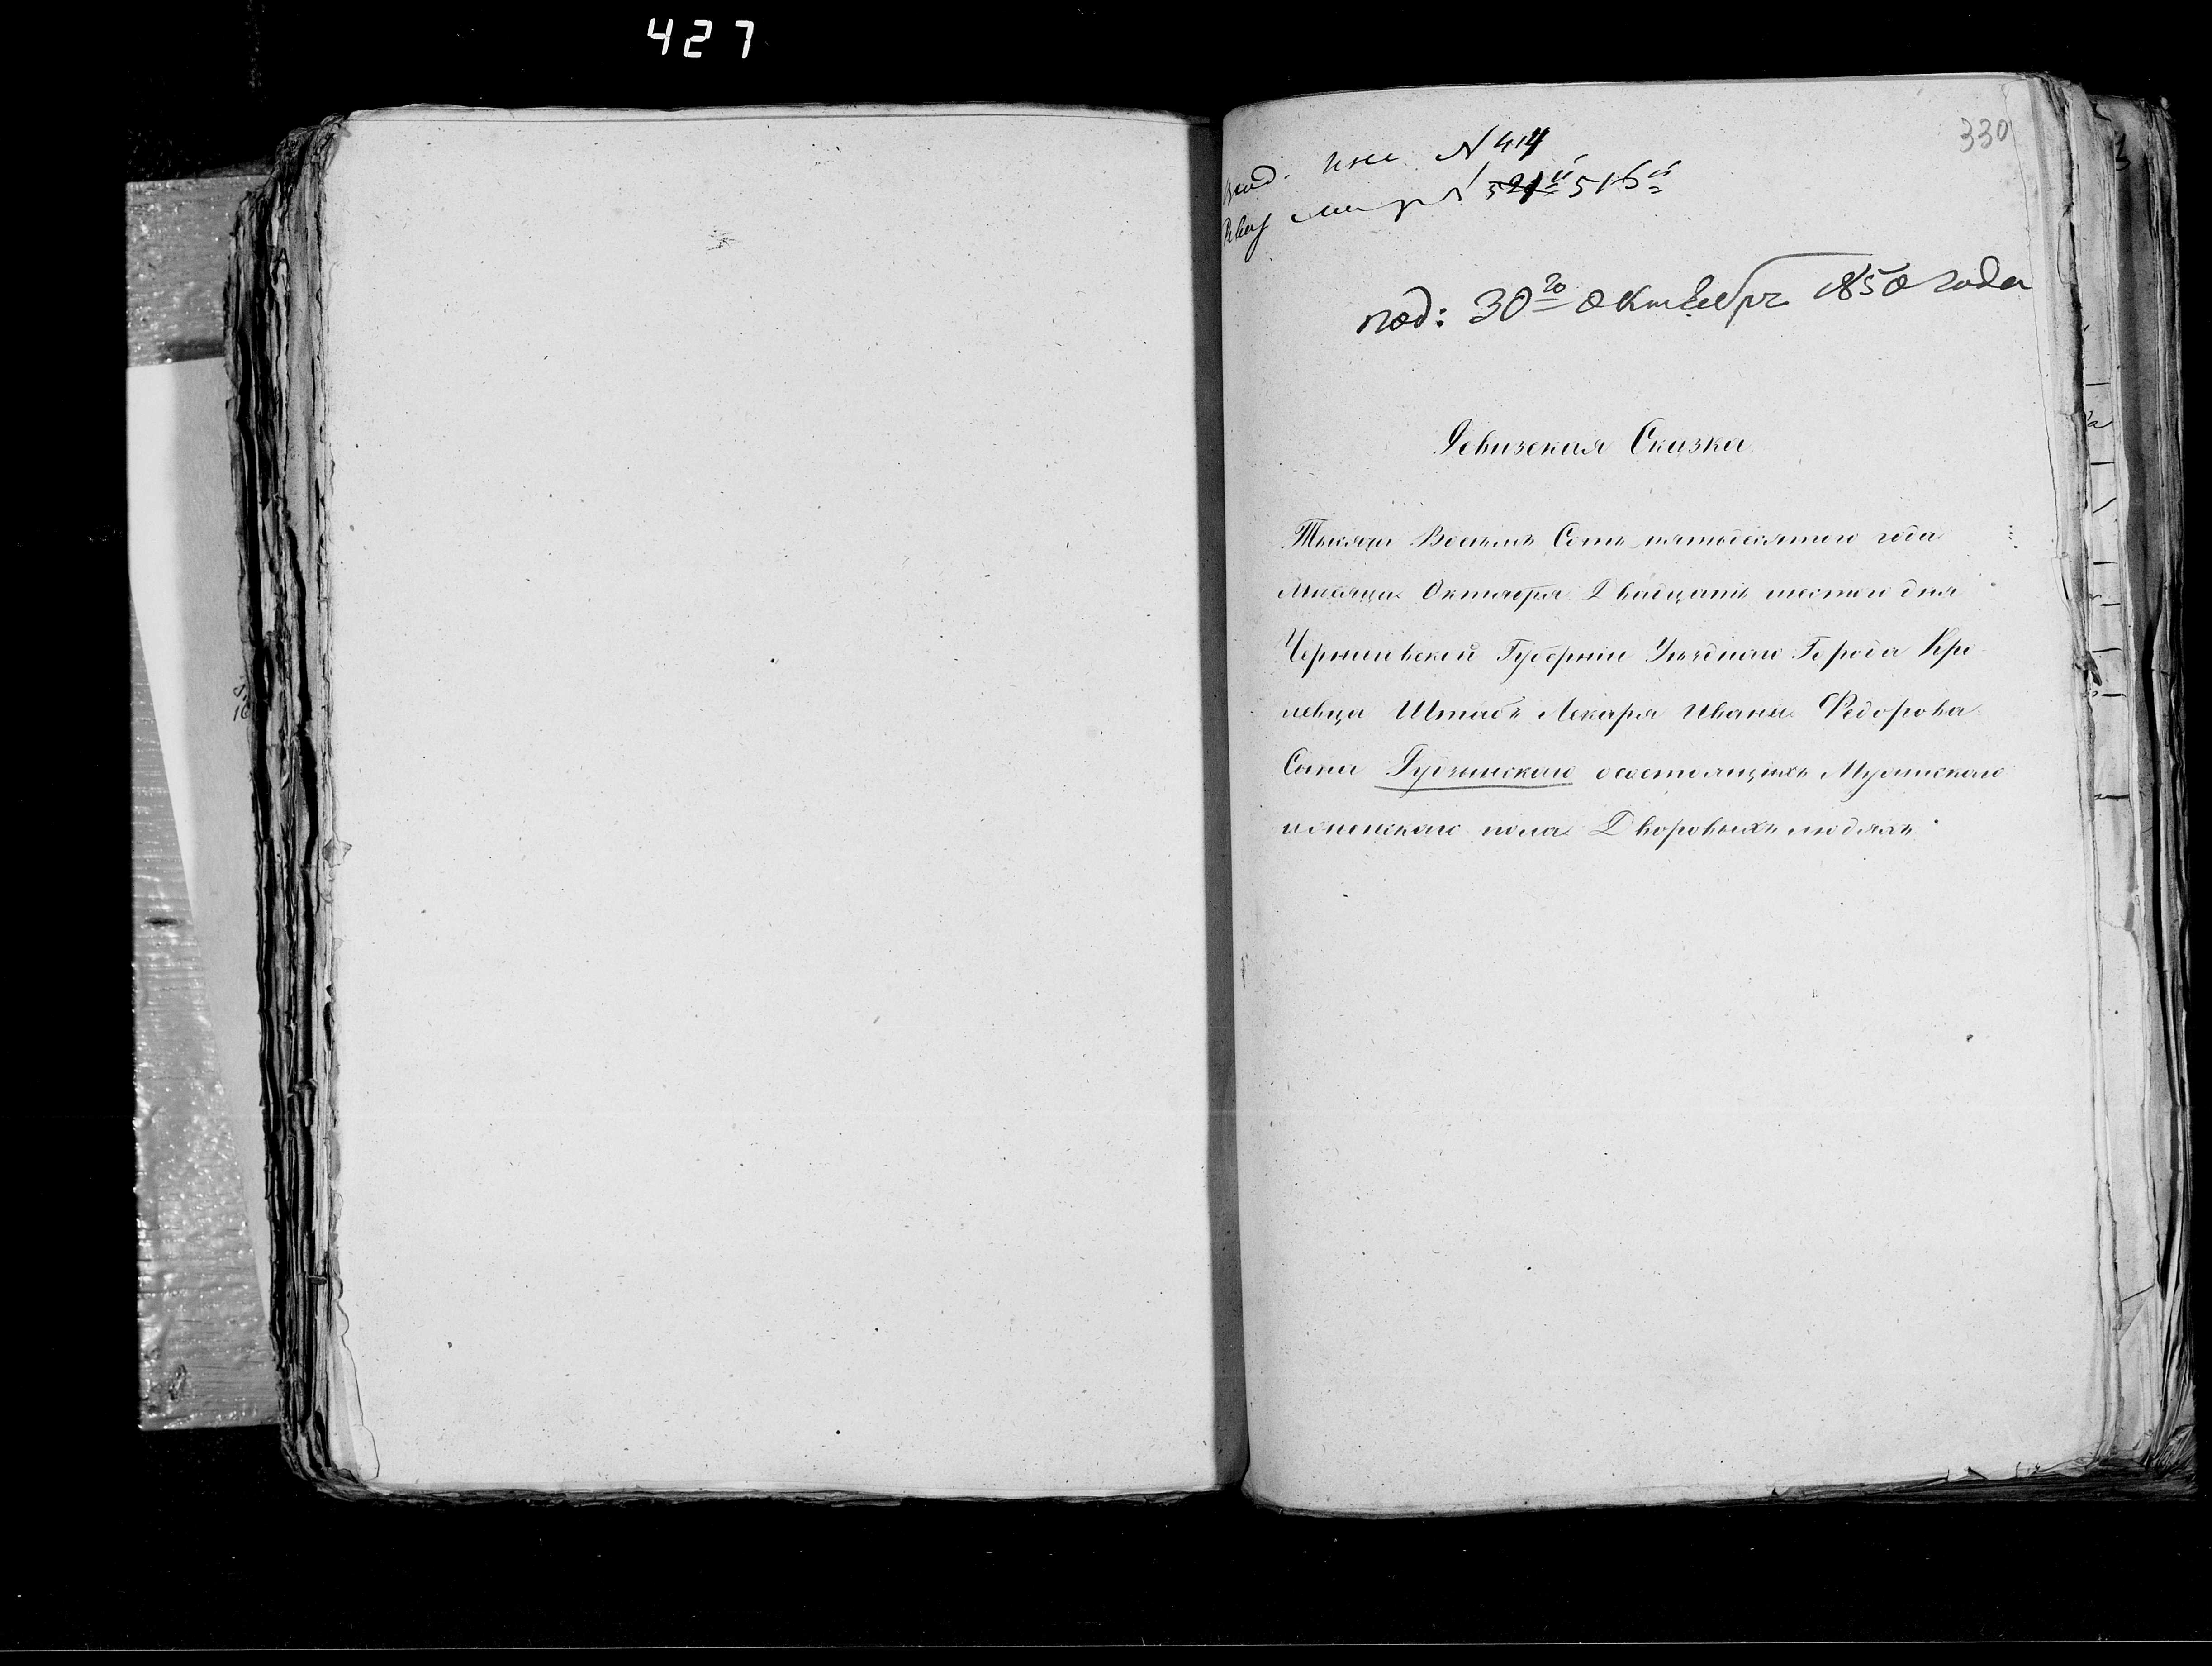 427
330
вход. N 414
516й
под: 30го Октября 1850 года
Ревизская Сказка
Тысяча Восемь Сотъ пятьдесятого года
Месяца Октября Двадцать шестого дня
Черниговской Губернии Уездного Города Кро
левца Штабъ Лекаря Ивана Федорова
Сына Гудзинского о состоящихъ Мужискаго
иженскаго пола Дворовыхъ людяхъ